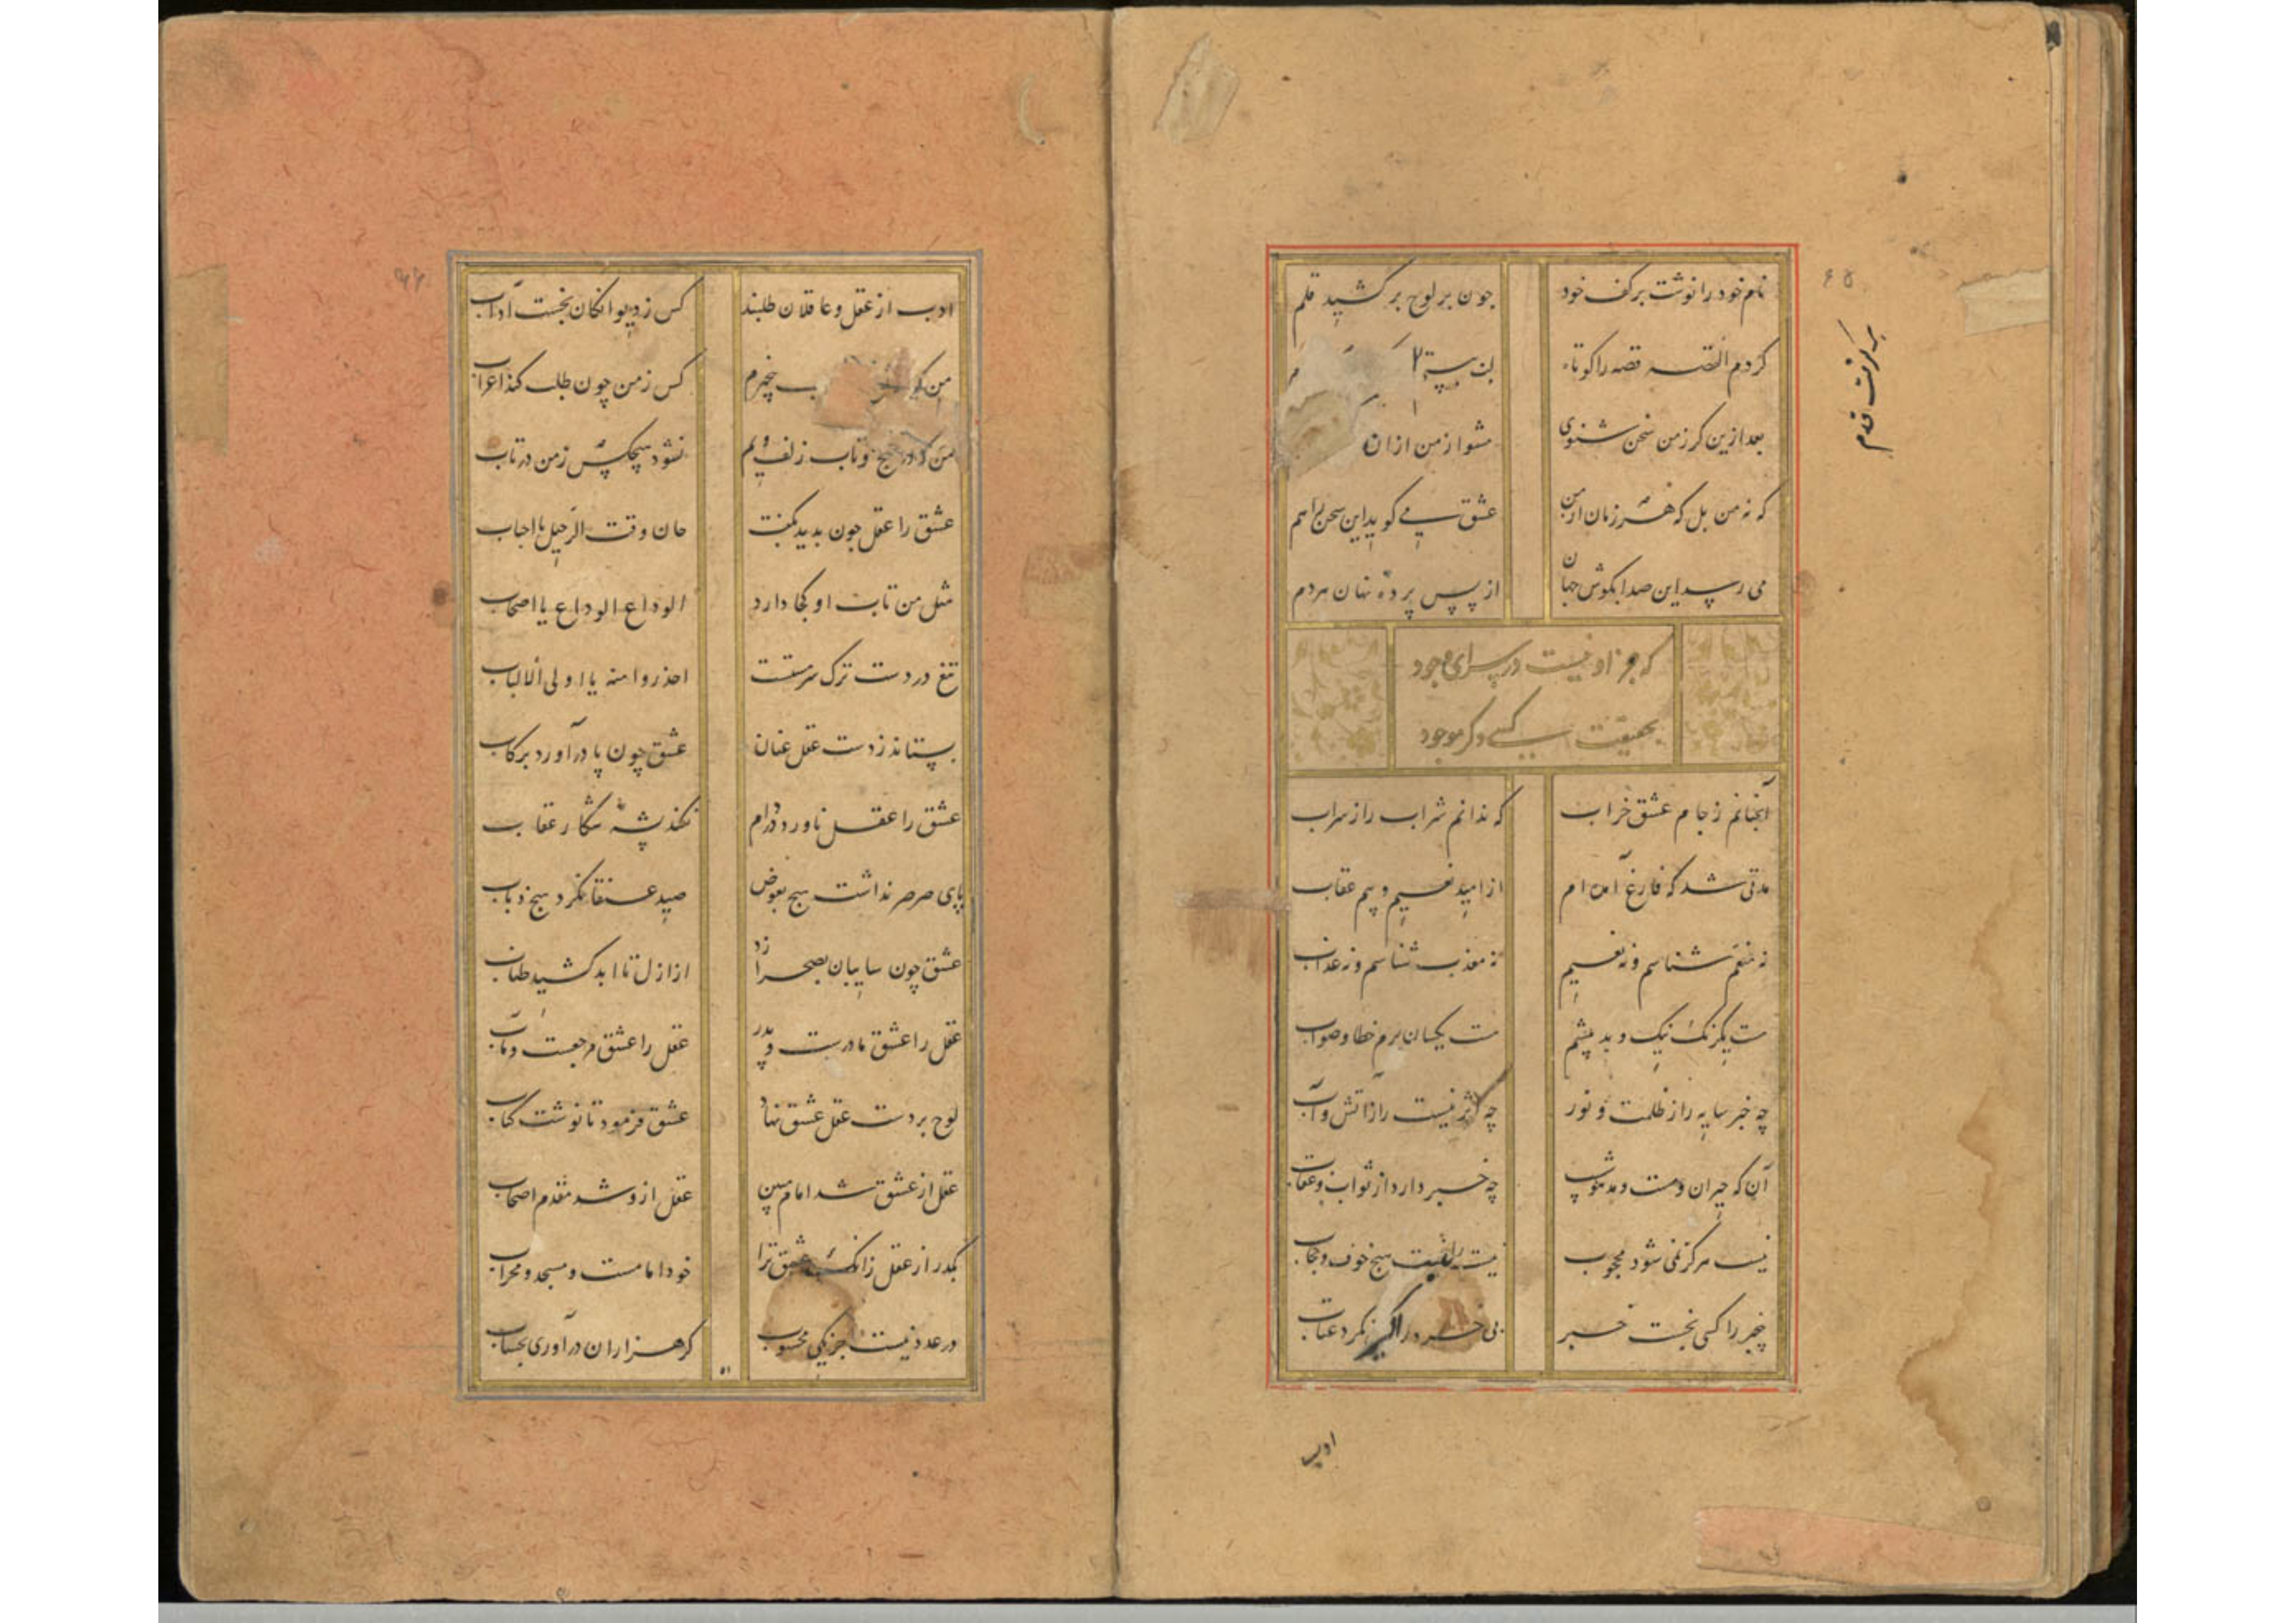 نام خود را نوشت بر کف خود
چون بر لوح بر کشید قلم
کردم القصه قصه را کوتاه
بعد ازین کر زمن سخن شنوی
مشو از من از ان
که نه من بل که هر زمان از من
عشق می کوید این سخن
می رسد این صدا بکوش جهان
از پس پرده نهان هردم
که جز او نیست در سرای وجود
بحقیقت کسی دکر موجود
آنچنانم ز جام عشق خراب
که ندانم شراب را ز سراب
مدتی شد که فارغ آمده ام
از امید نعیم و بیم عقاب
نه منعم شناسم و نه نعیم
نه معذب شناسم و نه عذاب
هست یکرنک نیک و بد پیشم
هست یکسان برم خطا و صواب
چه خبر سایه را ز ظلمت و نور
چه اثر نیست را ز آتش و آب
آن که حیران و مست و مدهوش
چه خبر دارد از ثواب و عقاب
نیست هرکز نمی شود محجوب
نیست را نیست هیچ خوف و حجاب
بی خبر را کسی نجست خبر
بی خبر را کسی نکرد عتاب
ادب
ادب از عقل و عاقلان طلبند
کس ز دیوانکان نجست آداب
من که بیخبرم
کس ز من چون طلب کند اعراب
من که در پیچ و تاب زلف ویم
نشود هیچکس ز من در تاب
عشق را عقل چون بدید بکفت
حان وقت الرحیل یا احباب
مثل من تاب او کجا دارد
الوداع الوداع یا اصحاب
تیغ در دست ترک سرمستست
احذروا منه یا اولی الالباب
بستاند ز دست عقل عنان
عشق چون پا در آورد برکاب
عشق را عقل ناورد در دام
نکند پشه شکار عقاب
پای صرصر نداشت هیچ بعوض
صید عنقا نکرد هیچ ذباب
عشق چون سایبان بصحرا زد
از ازل تا ابد کشید طناب
عقل را عشق مادرست و پدر
عقل را عشق مرجعست و مآب
لوح بر دست عقل عشق نهاد
عشق فرمود تا نوشت کتاب
عقل از عشق شد امام مبین
عقل ازو شد مقدم اصحاب
بکذر از عقل زانک عشق ترا
خود امامست و مسجد و محراب
در عدد نیست جز یکی محسوب
کر هزاران در آوری بحساب